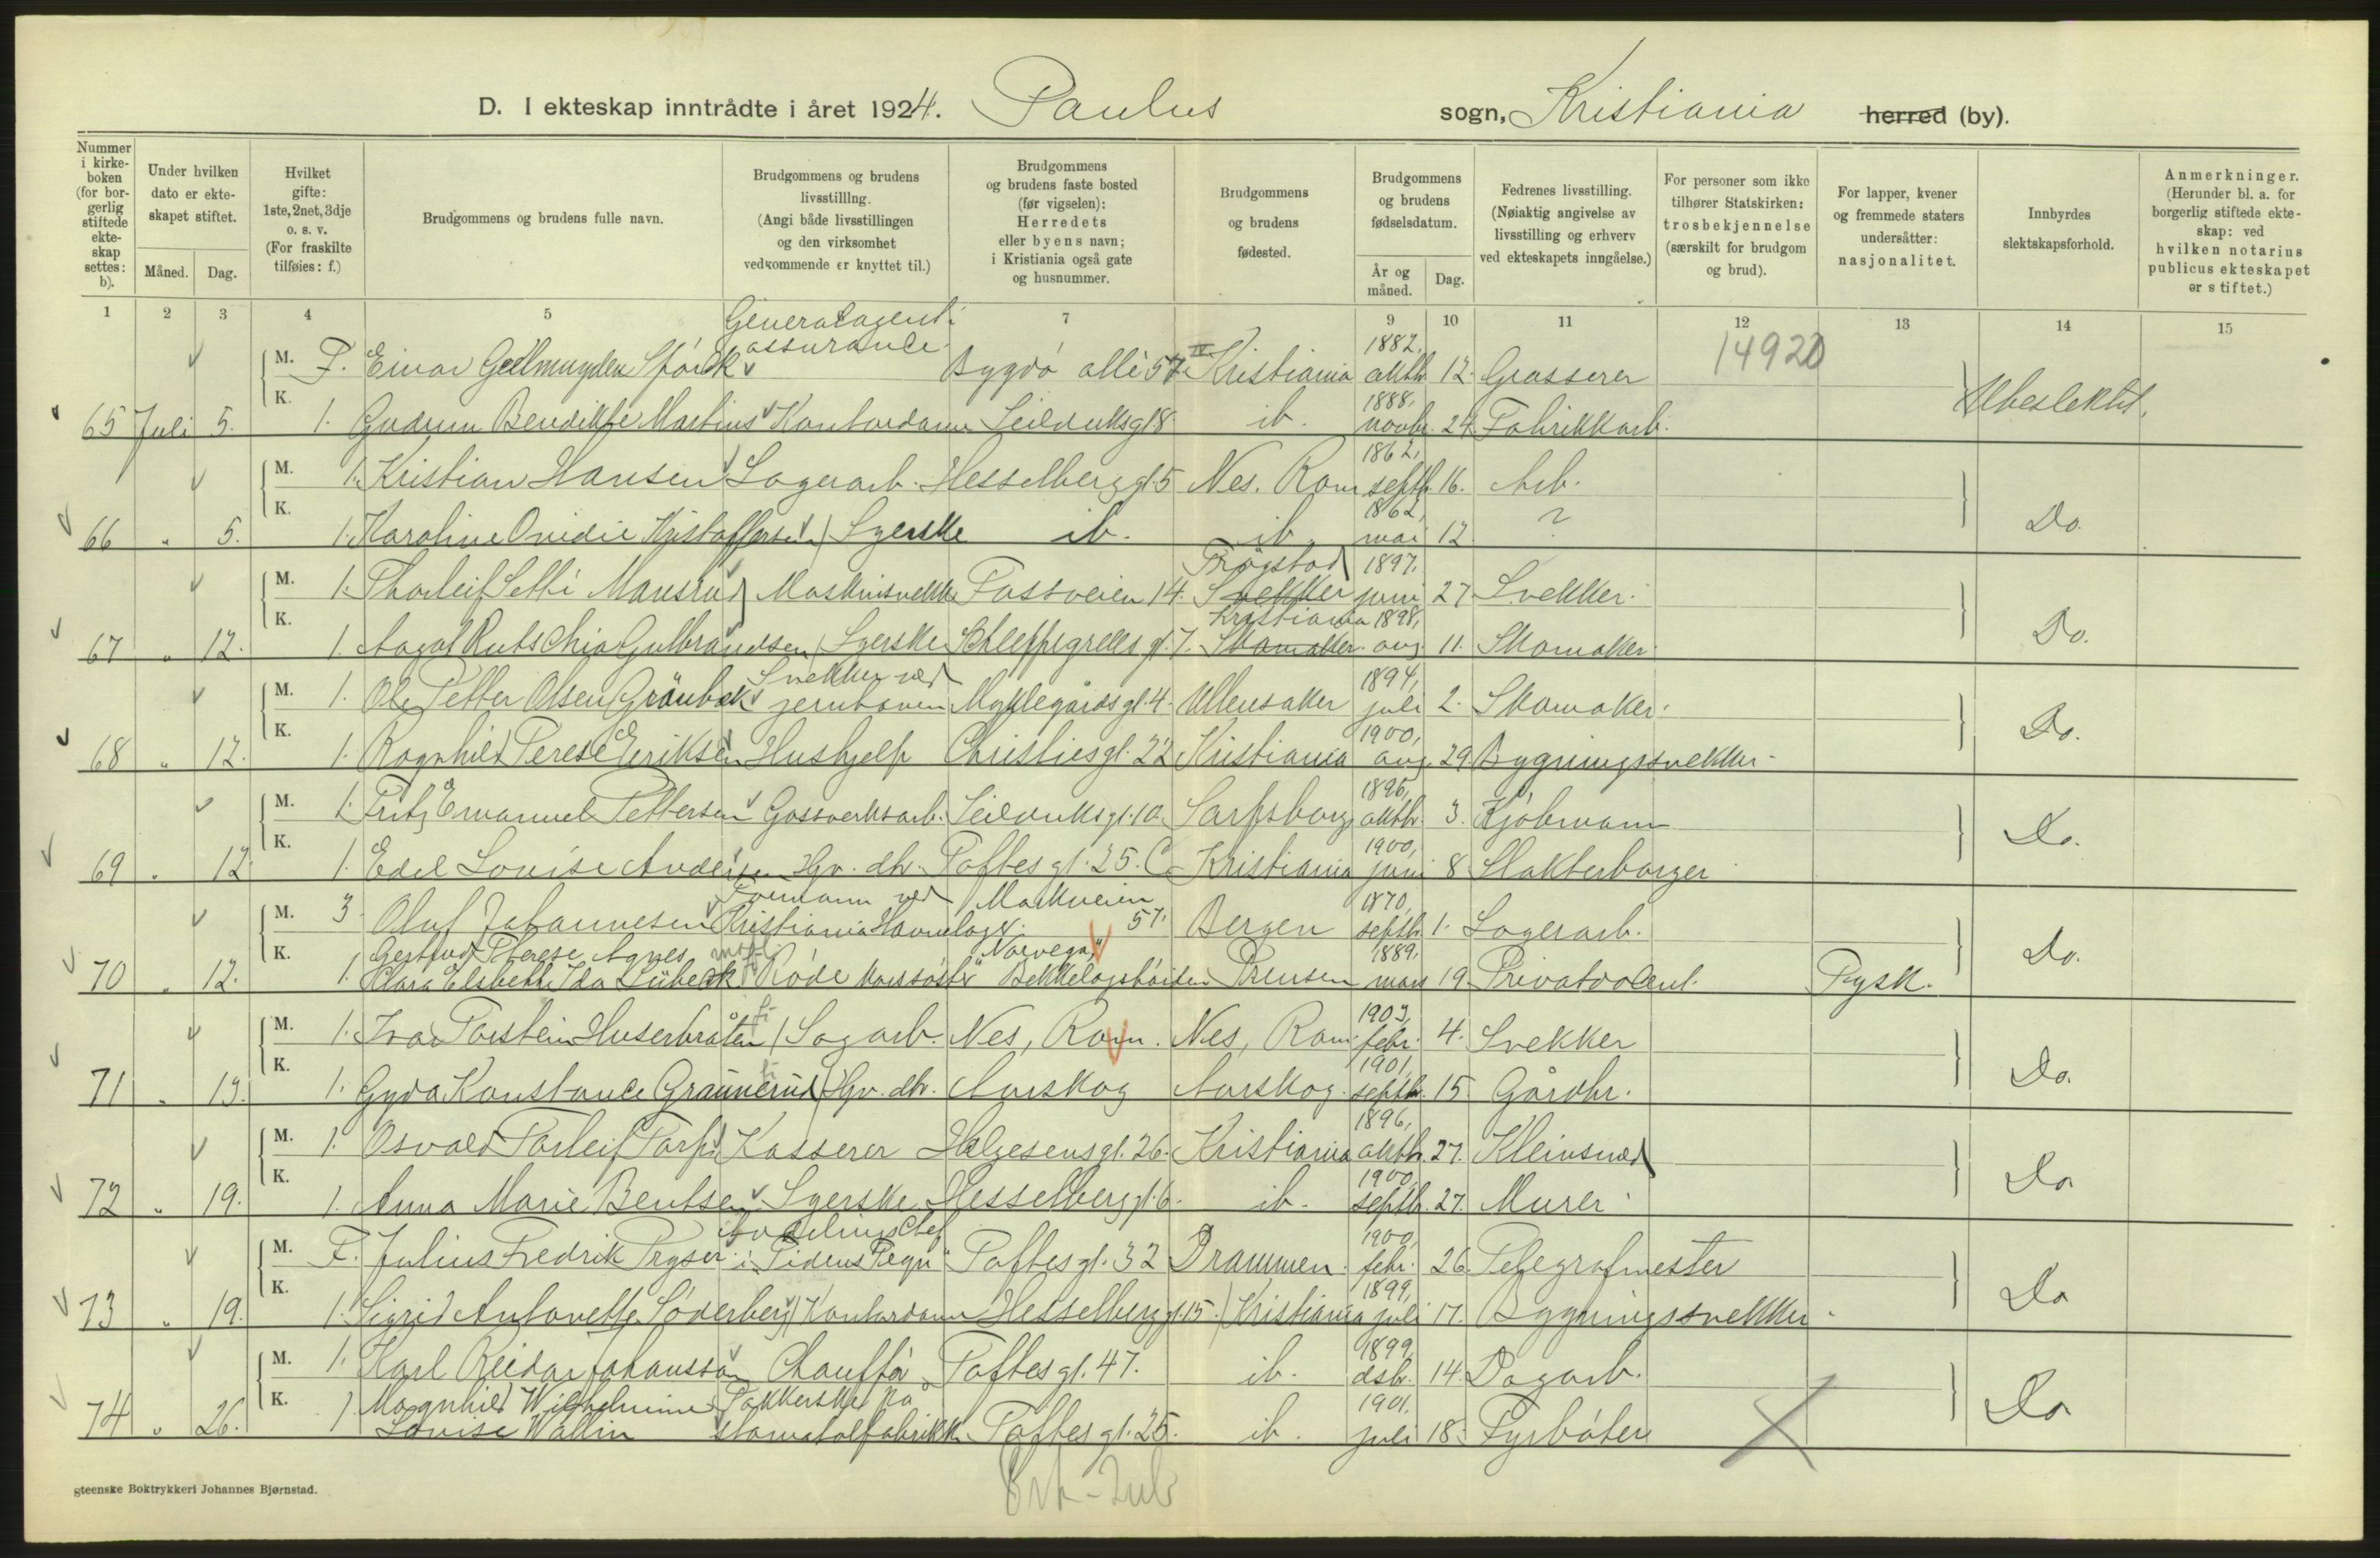 D. I ekteskap inntrådte i året 1924. Paulus sogn, Kristiania herred (by).
Nummer i kirke-boken (for bor-gerlig stiftede ekte-skap settes: b).
Under hvilken dato er ekte-skapet stiftet.
Måned. Dag.
Hvilket gifte: 1ste, 2net, 3dje o. s. v. (For fraskilte tilføies: f.)
Brudgommens og brudens fulle navn.
Brudgommens og brudens livsstilling. (Angi både livsstillingen og den virksomhet vedkommende er knyttet til.)
Brudgommens og brudens faste bosted (før vigselen): Herredets eller byens navn; i Kristiania også gate og husnummer.
Brudgommens og brudens fødested.
Brudgommens og brudens fødselsdatum.
År og måned. Dag.
Fedrenes livsstilling. (Nøiaktig angivelse av livsstilling og erhverv ved ekteskapets inngåelse.)
For personer som ikke tilhører Statskirken: trosbekjennelse (særskilt for brudgom og brud).
For lapper, kvener og fremmede staters undersåtter: nasjonalitet.
Innbyrdes slektskapsforhold.
Anmerkninger. (Herunder bl. a. for borgerlig stiftede ekte-skap: ved hvilken notarius publicus ekteskapet er stiftet.)
1 2 3 4 5 7 9 10 11 12 13 14 15
14920
M. F. Einar Gellmuyden Spörck Generalagent i assurance Bygdö allé 57 IV Kristiania 1882, oktbr. 12. Grosserer
65 Juli 5. K. 1. Gudrun Bendikte Martins Kontordame Seilduksgt 8 ib. 1888, novbr. 24 Fabrikkarb. Ubeslektet,
M. 1. Kristian Hansen Lagerarb. Hesselbergsgt. 5 Nes. Rom 1862, septb. 16. Arb.
66 " 5. K. 1. Karoline Ovidie Kristoffersen Syerske ib. ib. 1862, mai 12 ? Do.
M. 1. Thorleif Setti Mansrud Maskinsnekker Fossveien 14. Trögstad Snekker 1897, juni 27 Snekker.
67 " 12. K. 1. Aagot Gulbrandsen Syerske Schleppegrells gt. 7. Kristiania Skomaker 1898, aug. 11. Skomaker. Do.
M. 1. Ole Petter Olsen Grönbek Snekker ved jernbanen Myklegårds gt. 4. Ullensaker 1894, juli 2. Skomaker.
68 " 12. K. 1. Ragnhild Terese Eriksen Hushjelp Christiesgt. 22 Kristiania 1900, aug. 29. Bygningssnekker. Do.
M. 1. Fritz Emanuel Pettersen Gassverksarb. Seilduksgt. 10. Sarpsborg 1896, oktbr. 3. Kjöbmann
69 " 12. K. 1. Edel Louise Andersen Hjv. dtr. Toftes gt. 25. C Kristiania 1900, juni 8 Slakterborger Do.
M. 3 Oluf Johannesen Formann ved Kristiania Havnelager. Markveien 57. Bergen 1870, septb. 1. Lagerarb.
70 " 12. K. 1. Gertrud Therese Agnes Clara Elsbeth Ida Lübeck Röde "Norvega" Bekkelagshöiden 1889. mars 19. Privatdocent. Tysk. Do.
M. 1. Ivar Torstein Huserbråten Sagarb. Nes, Rom. Nes, Rom. 1903, febr. 4. Snekker
71 " 13. K. 1. Gyda Konstance Graunerud Hjv. dtr. Aurskog Aurskog. 1901, septb. 15 Gårdbr. Do.
M. 1. Osvald Torleif Torp Kasserer Helgesensgt. 26. Kristiania 1896, oktb. 27. Kleinsmed
72 " 19. K. 1. Anna Marie Bentsen Syerske Hesselbergsgt. 6. ib. 1900, septb. 27. Murer. Do.
M. F. Julius Fredrik Pryser Avdelingschef i "Tidens Tegn" Toftesgt. 32 Drammen. 1900, febr. 26. Telegrafmester
73 " 19. K. 1. Sigrid Antonette Söderberg Kontordame Hesselbergsgt. 15. Kristiania 1899, juli 17. Bygningssnekker. Do
M. 1. Karl Reidar Johanssön Chaufför Toftesgt. 47. ib. 1899, dsb. 14. Dagarb.
74 " 26. K. 1. Magnhild Wilhelmine Lovise Wallin Pakkerske på stomatolfabrikk Toftesgt. 25. ib. 1901. juli 18. Fyrböter Do
gteenske Boktrykkeri Johannes Bjørnstad.